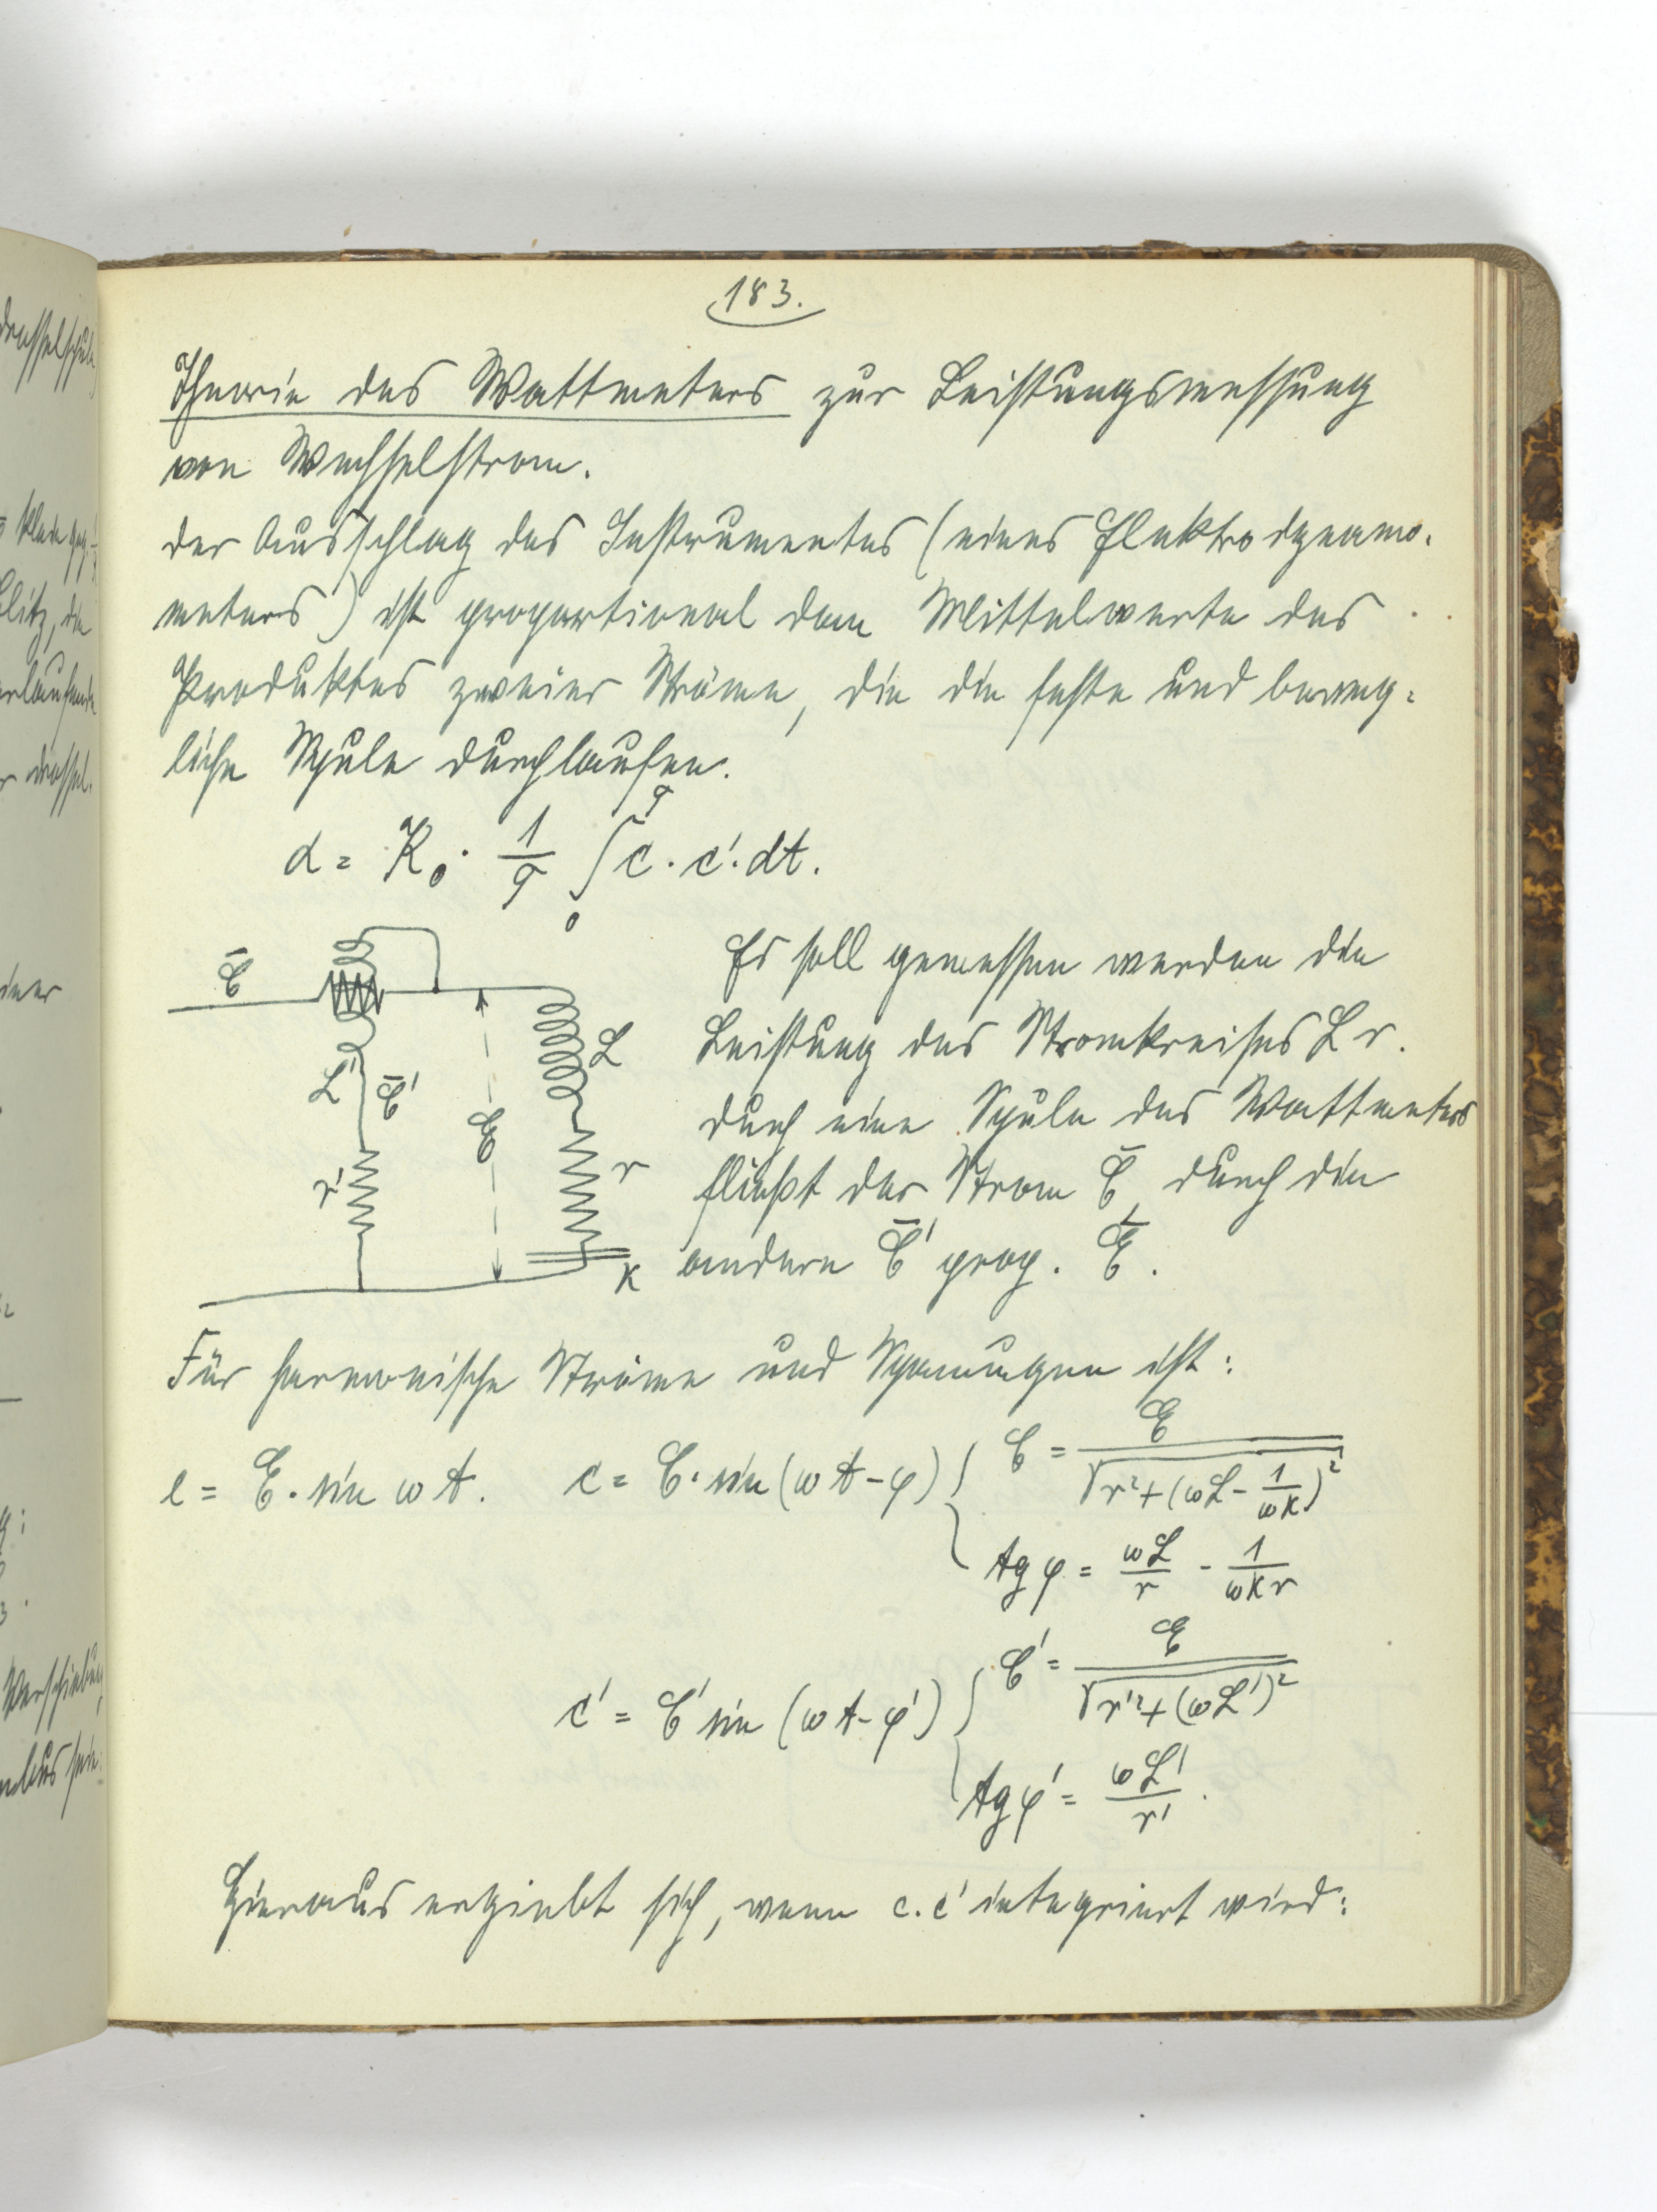 183.
Theorie des Wattmeters zur Leistungsmessung
von Wechselstrom.
Der Ausschlag des Instrumentes (eines Elektrodynamo-
meters) ist proportional dem Mittelwerte des
Produktes zweier Ströme, die die feste und beweg-
liche Spule durchlaufen.
α = K₀ · 1/T ∫₀ᵀ c · c' · dt.
Es soll gemessen werden die
Leistung des Stromkreises L r.
Durch eine Spule des Wattmeters
fließt der Strom C̄, durch die
andere C̄' prop. Ē.
C̄
L' C̄'
r'
E
L
r
K
Für harmonische Ströme und Spannungen ist:
e = E · sin ωt. c = C · sin (ωt - φ) { C = E / √(r² + (ωL - 1/ωK)²)
tg φ = ωL/r - 1/ωKr
c' = C' sin (ωt - φ') { C' = E / √(r'² + (ωL')²)
tg φ' = ωL'/r'.
Hieraus ergiebt sich, wenn c. c' integriert wird: